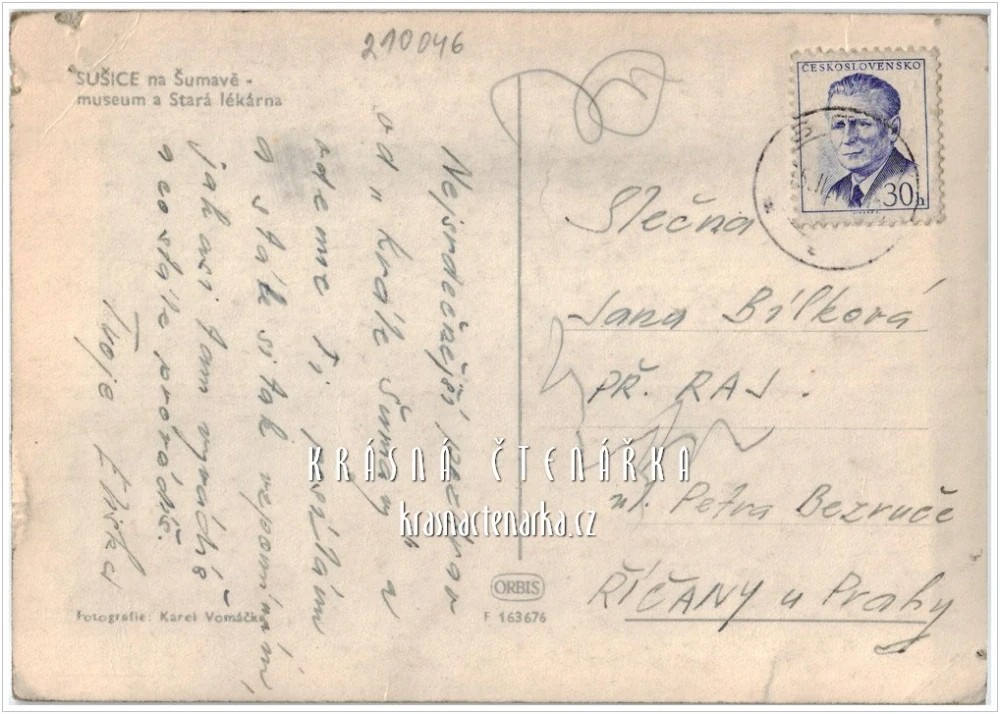 210046
SUŠICE na Šumavě -
museum a Stará lékárna
Nejsrdečnější pozdrav
od „ krále Šumavy "
sdeme ti posílám
a stále si tak vzpomínám,
jak asi tam vyvádíš
a co stále provádíš.
Tvoje
Fotografie: Karel Vomáčka
ORBIS
F 163676
ČESKOSLOVENSKO
30h
Slečna
Jana Bílková
PŘ. RAJ.
ul. Petra Bezruče
ŘÍČANY u Prahy
KRÁSNÁ ČTENÁŘKA
krasnactenarka.cz